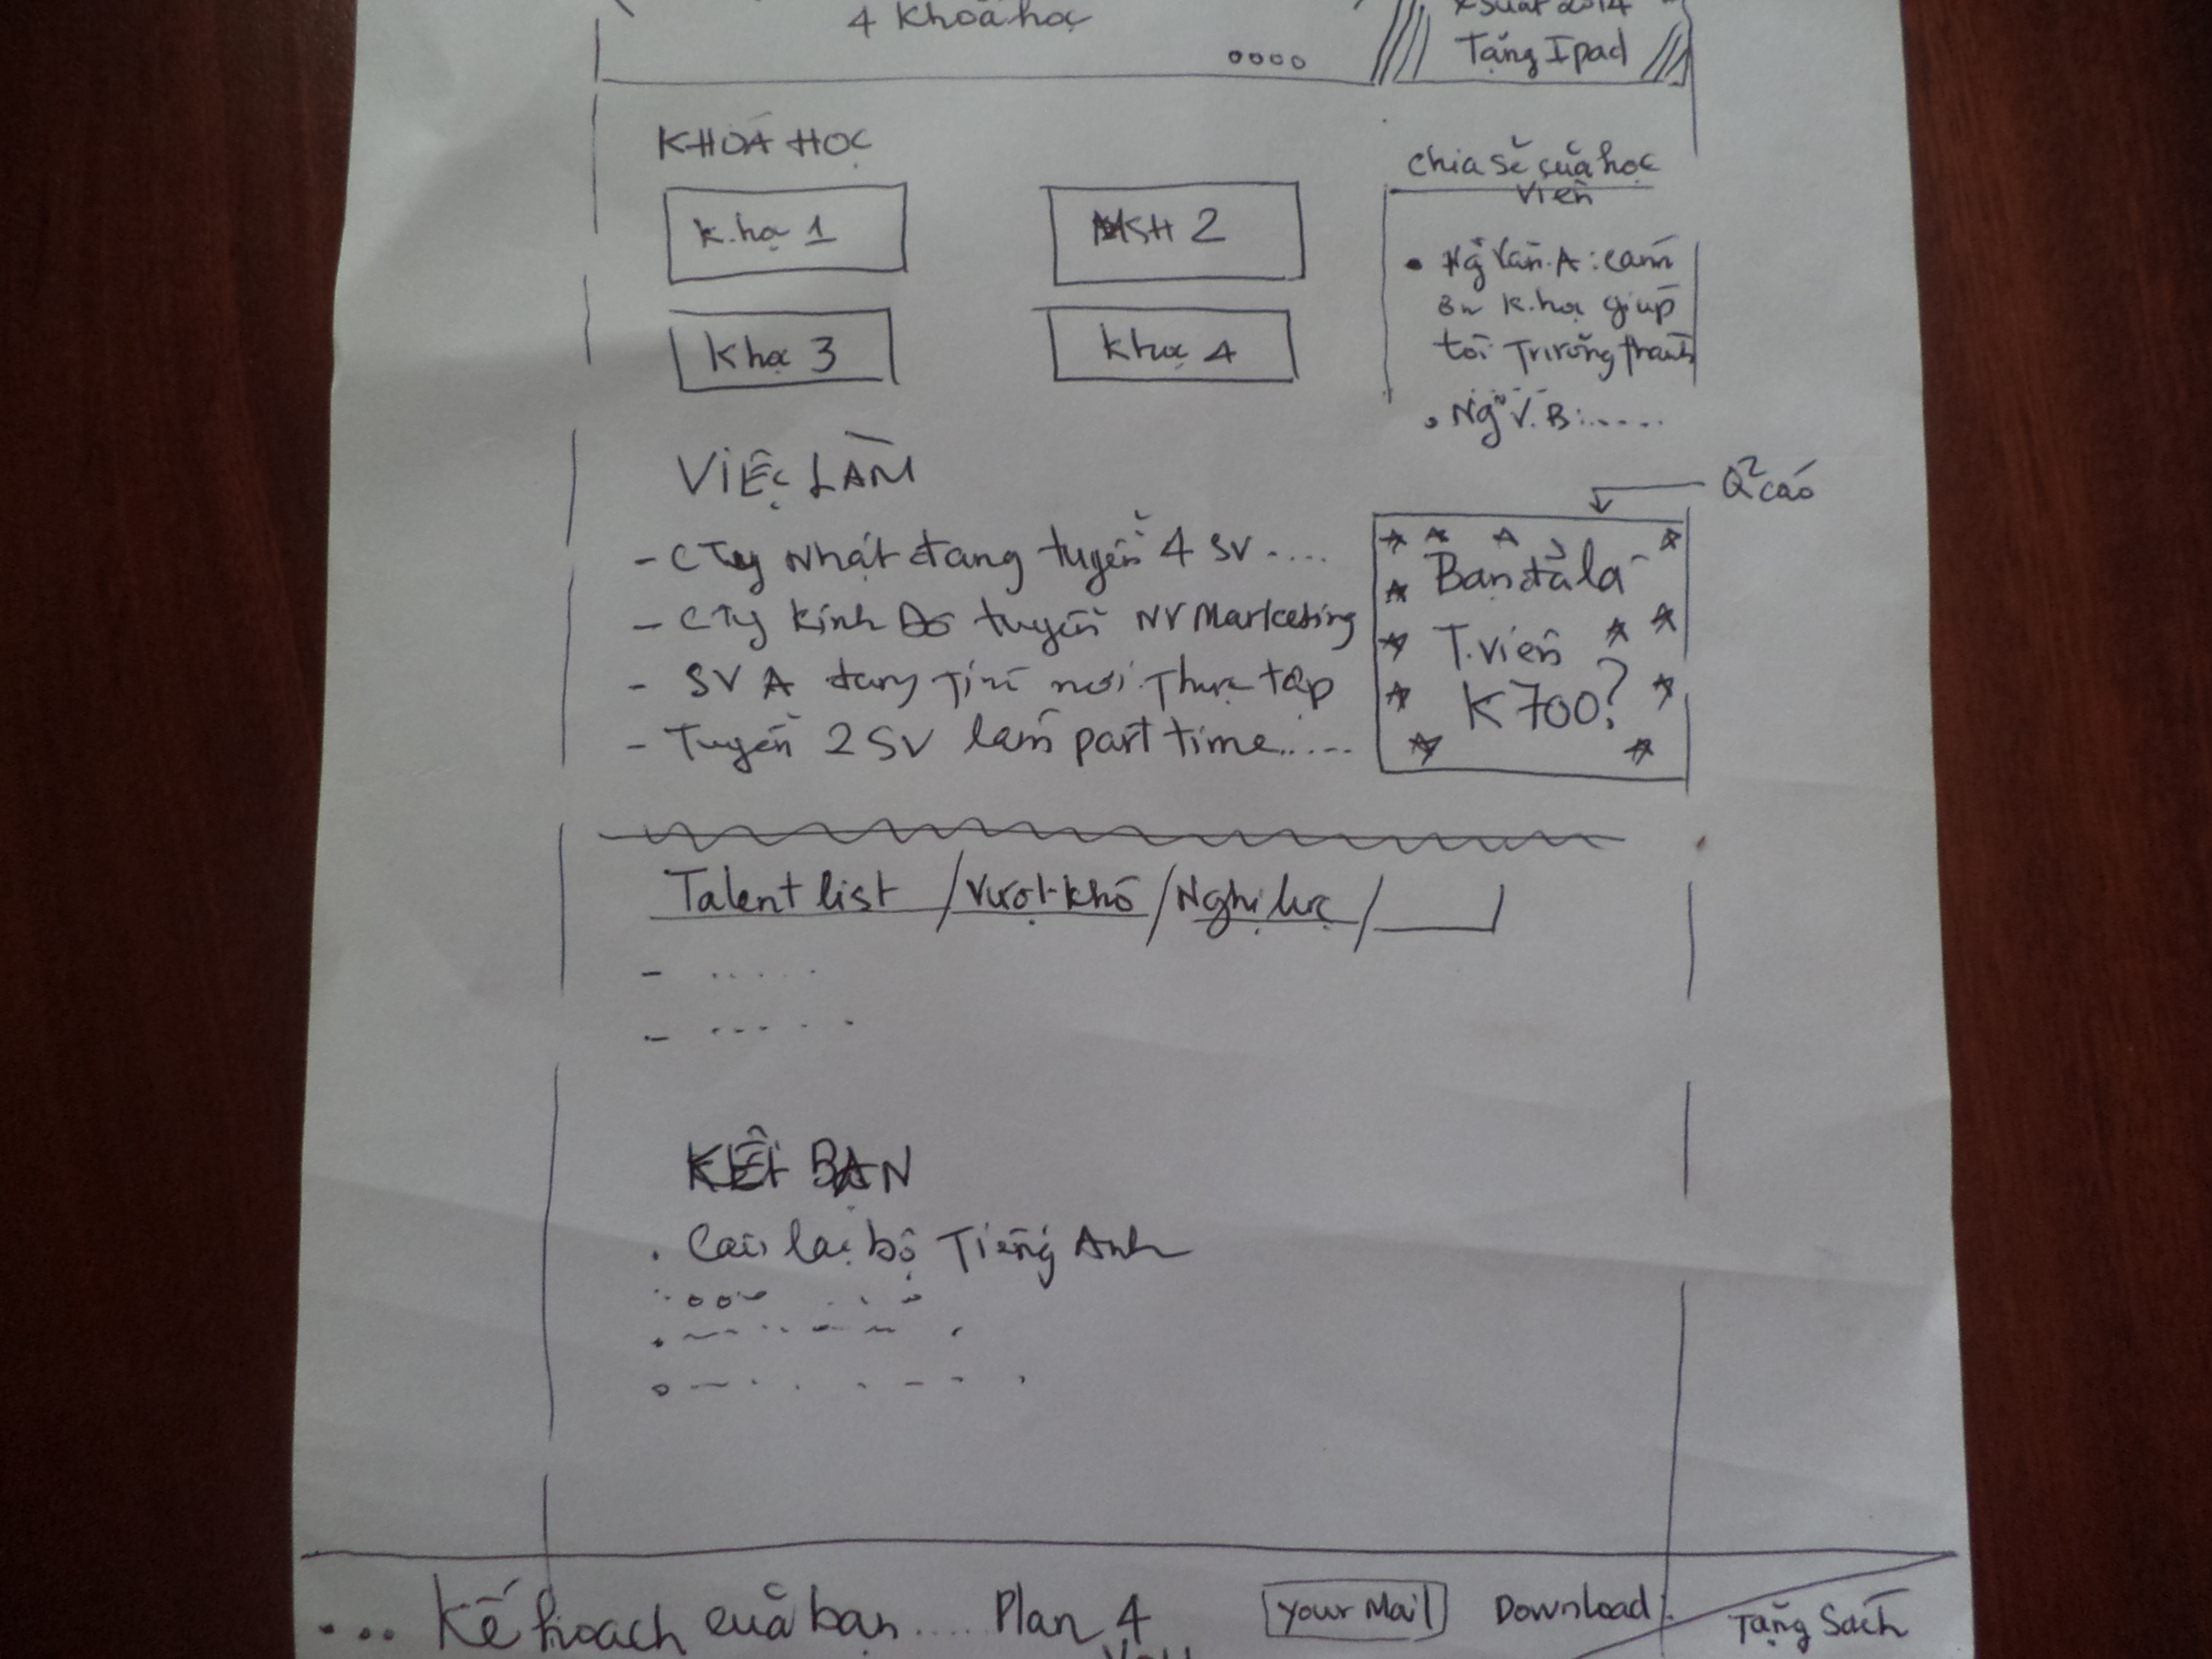 4 Khoá học
xsuất 2014
Tặng Ipad
KHOÁ HỌC
K.học 1
KH 2
Khọc 3
Khoá 4
Chia sẻ của học
viên
• Ng Văn.A: cảm
ơn K.học giúp
tôi Trưởng thành
• Ng V.B:.....
VIỆC LÀM
Q² cáo
- CTy Nhật đang tuyển 4 SV....
- CTy Kinh Đô tuyển NV Marketing
- SV A đang Tìm nơi Thực tập
- Tuyển 2 SV làm part time.....
Bạn đã là
T.viên
K700?
Talent list / Vượt khó / Nghị lực /
KẾT BẠN
. Câu lạc bộ Tiếng Anh
... Kế hoạch của bạn.... Plan 4
You
your Mail
Download
Tặng Sách